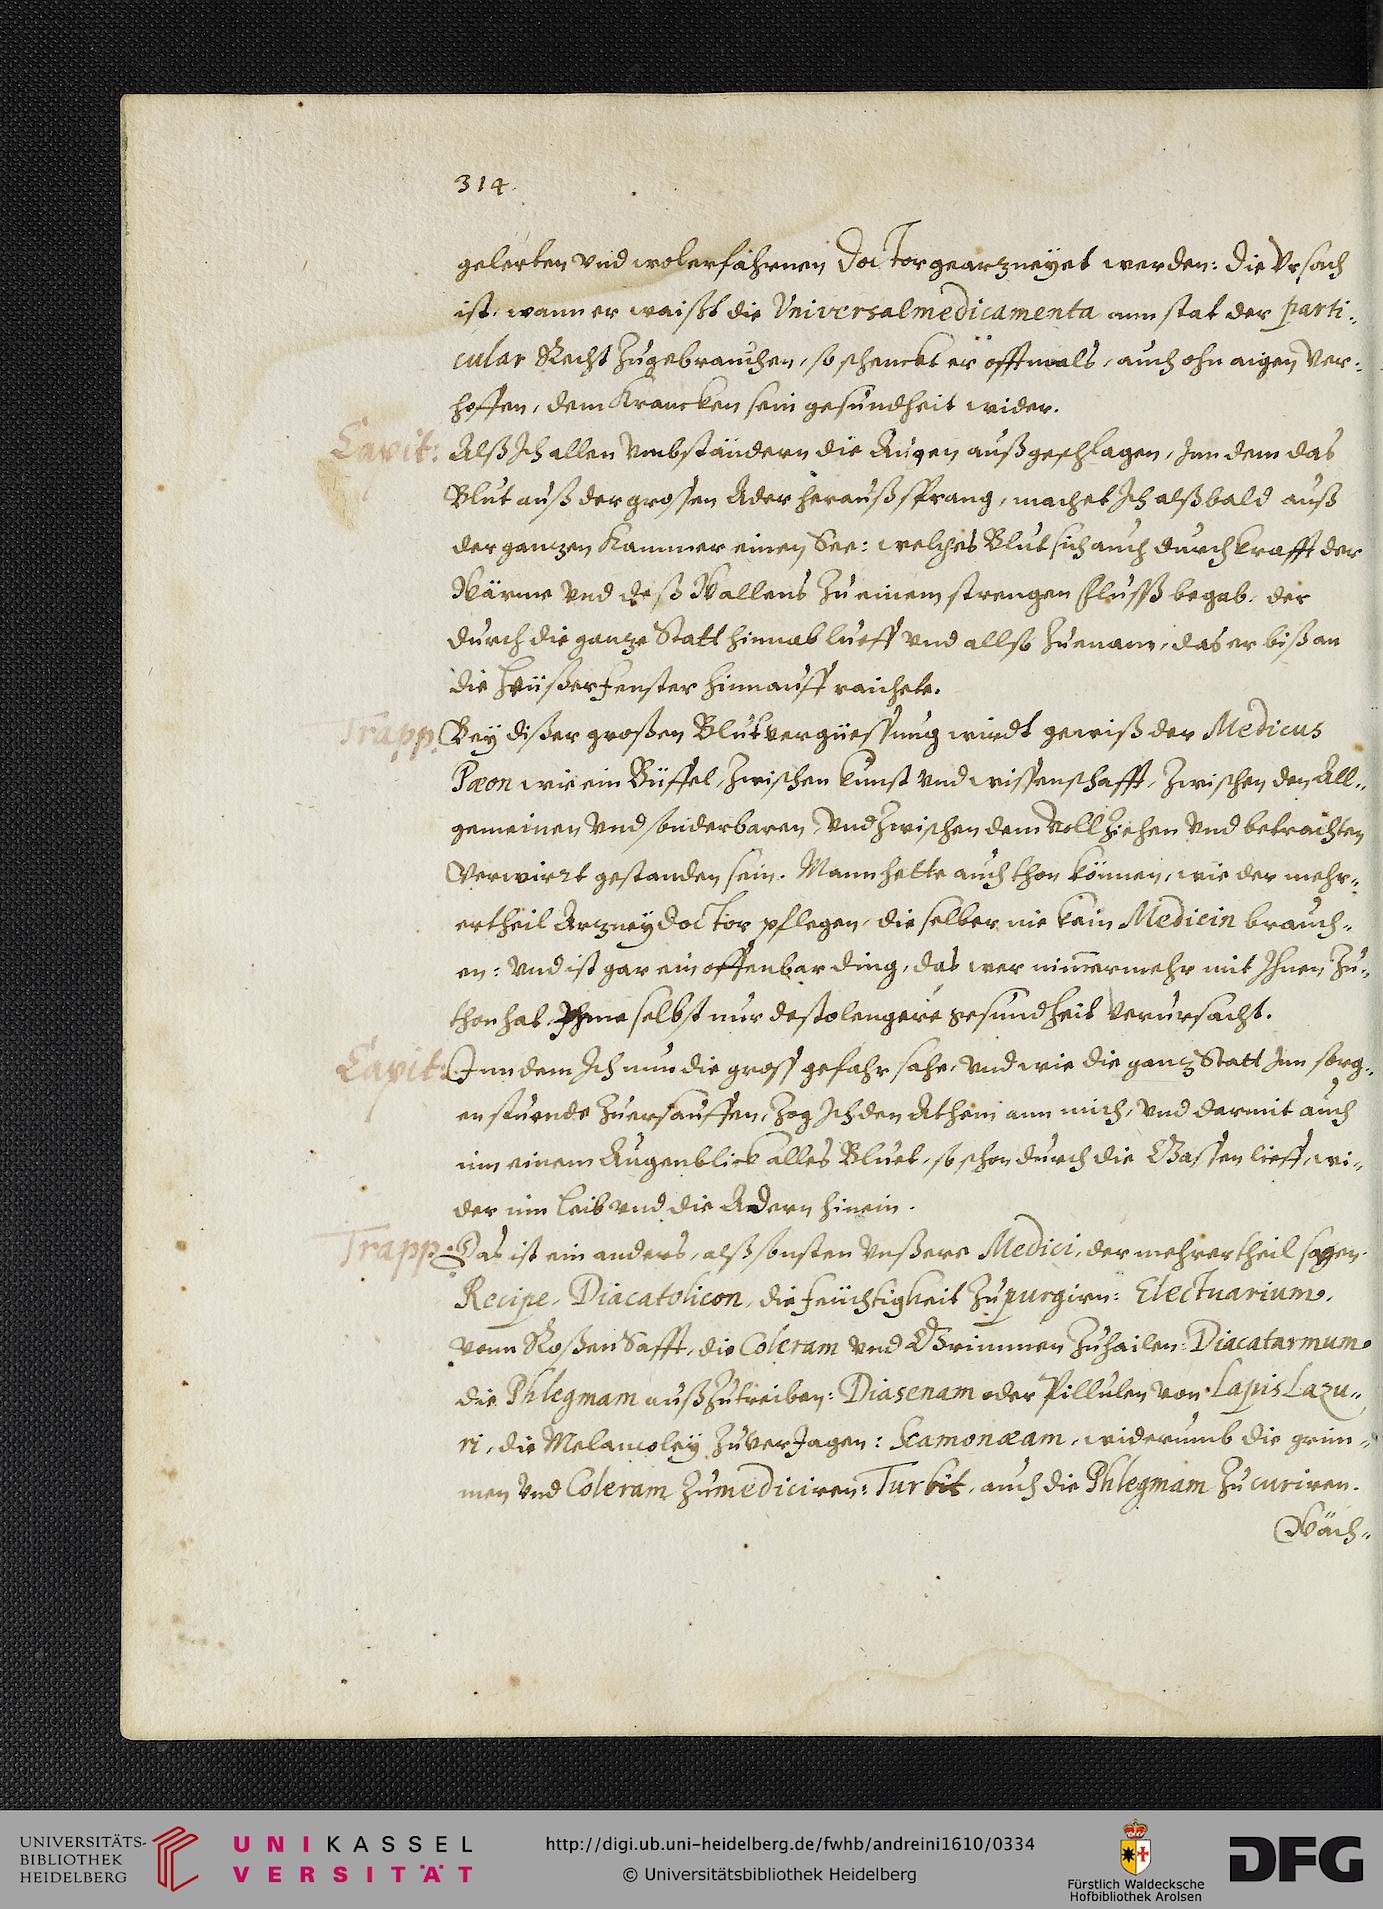 314.
gelerten vnd wolerfahrnen Doctor gearzneÿet werden: die Vrsach
ist, wann er waißt die Universalmedicamenta ann stat der parti-
cular Recht zugebrauchen, so schenckt er offtmals, auch ohn aigen ver-
hoffen, dem Krancken sein gesundheit wider.
Capit: Alß Ich allen Vmbständern die Augen außgeschlagen, Inn dem das
Blut auß der grossen Ader heraußsprang, machet Ich alßbald auß
der ganzen Kammer einen See: welches Blut sich auch durch krafft der
Wärme vnd deß Wallens zu einem strengen Flusß begab, der
durch die ganze Statt hinnab lueff vnd allso zuenam, das er biß an
die Heüßer Fenster hinnauff raichete.
Trapp. Beÿ dißer großen Blutvergüessung wirdt gewiß der Medicus
Pæon wie ein Büffel, zwischen kunst vnd wissenschafft, zwischen den All-
gemeinen vnd sonderbaren, vnd zwischen dem vollziehen vnd betrachten
verwirrt gestanden sein. Mann hette auch thon können, wie der mehr-
ertheil Arzneÿ Doctor pflegen, die selber nie kein Medicin brauch-
en: vnd ist gar ein offenbar ding, das wer nim̄ermehr mit Ihnen zu-
thon hat, Ihme selbst nur desto lengere gesundheit verursacht.
Capit: Inn dem Ich nun die gross gefahr sahe, vnd wie die ganz Statt Inn sorg-
en stuende zuersauffen, zog Ich den Athem ann mich, vnd darmit auch
inn einem Augenblick alles Bluet, so schon durch die Gassen lieff, wi-
der inn leib vnd die Adern hinein.
Trapp: Das ist ein anders, alß sonsten vnßere Medici, der mehrertheil sagen
Recipe, Diacatolicon, die feüchtigkeit zu purgirn: Electuarium,
vonn Roßen Safft, die Coleram vnd Grimmen zuhailen: Diacatarmum
die Phlegmam außzutreiben: Diasenam oder Pillulen von Lapis Lazu-
ri, die Melancoleÿ zuverjagen: Scamonæam, widerumb die grim-
men vnd Coleram zu mediciren: Turbit, auch die Phlegmam zu curiren.
Wäch-
UNIVERSITÄTS-
BIBLIOTHEK
HEIDELBERG
UNIKASSEL
VERSITÄT
http://digi.ub.uni-heidelberg.de/fwhb/andreini1610/0334
© Universitätsbibliothek Heidelberg
Fürstlich Waldecksche
Hofbibliothek Arolsen
DFG